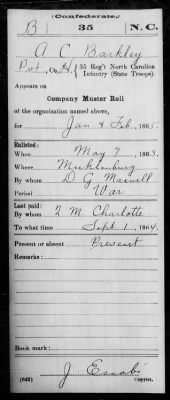 (Confederate.)
B 35 N.C.
A C Barkley
Pvt, Co. H, 35 Reg't North Carolina
Infantry (State Troops).
Appears on
Company Muster Roll
of the organization named above,
for Jan & Feb, 1865.
Enlisted:
When May 7, 1863.
Where Mecklenburg
By whom D G Maxwell
Period War
Last paid:
By whom Q M Charlotte
To what time Sept 1, 1864.
Present or absent Present
Remarks:
Book mark:
(642) Copyist.